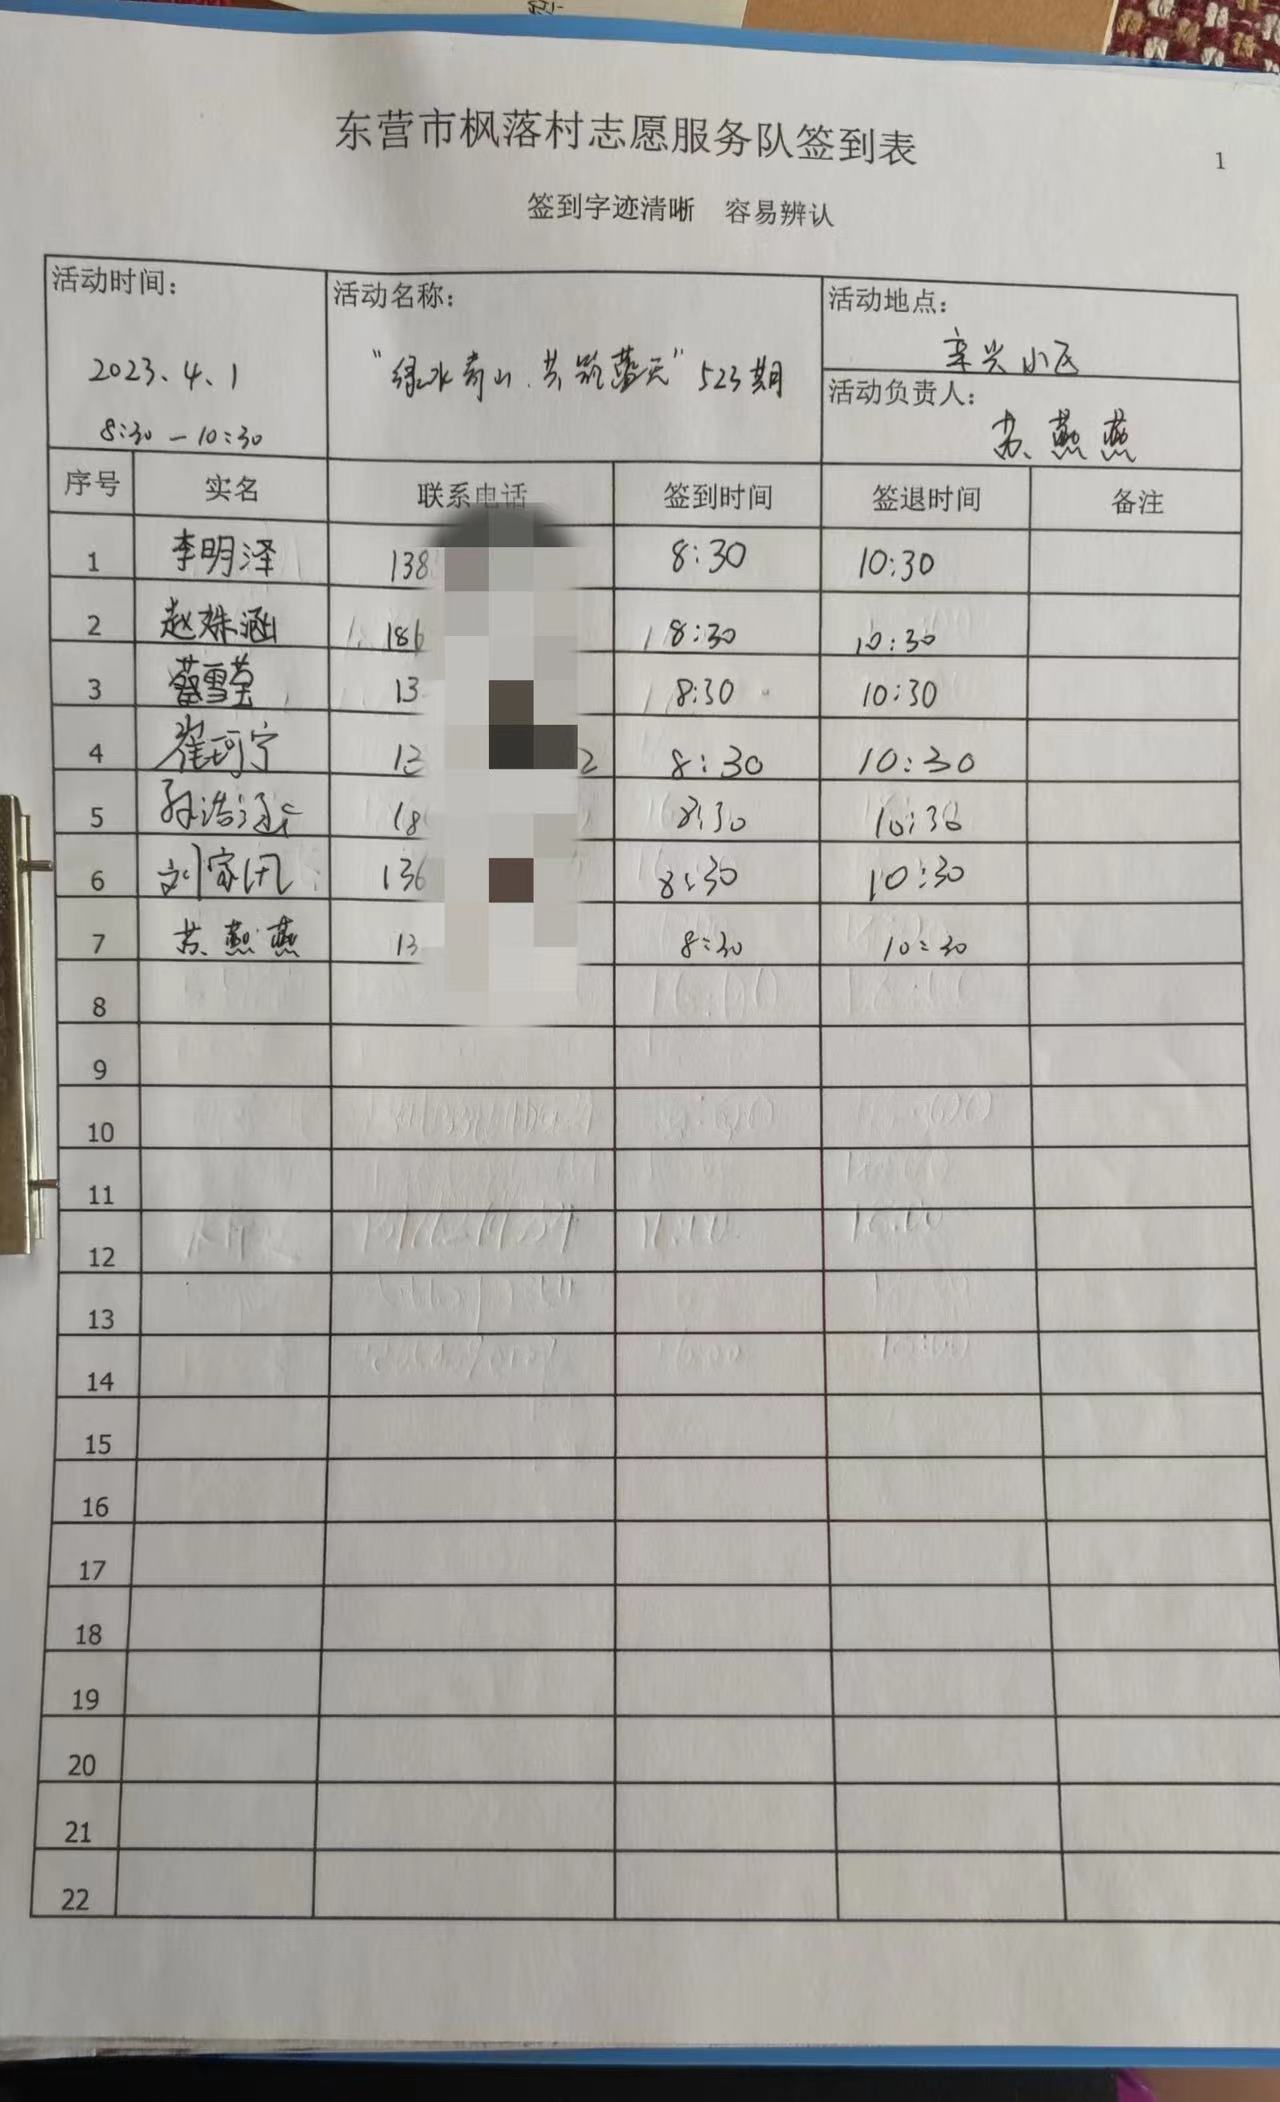 东营市枫落村志愿服务队签到表
1
签到字迹清晰 容易辨认
活动时间:
2023.4.1
8:30-10:30
活动名称:
"绿水青山.共筑蓝天"523期
活动地点:
辛兴小区
活动负责人:
苏燕燕
序号 实名 联系电话 签到时间 签退时间 备注
1 李明泽 138 8:30 10:30
2 赵姝涵 186 8:30 10:30
3 雪莹 13 8:30 10:30
4 崔珂宁 13 2 8:30 10:30
5 孙浩涵 18 8:30 10:30
6 刘家 136 8:30 10:30
7 苏燕燕 13 8:30 10:30
8
9
10
11
12
13
14
15
16
17
18
19
20
21
22